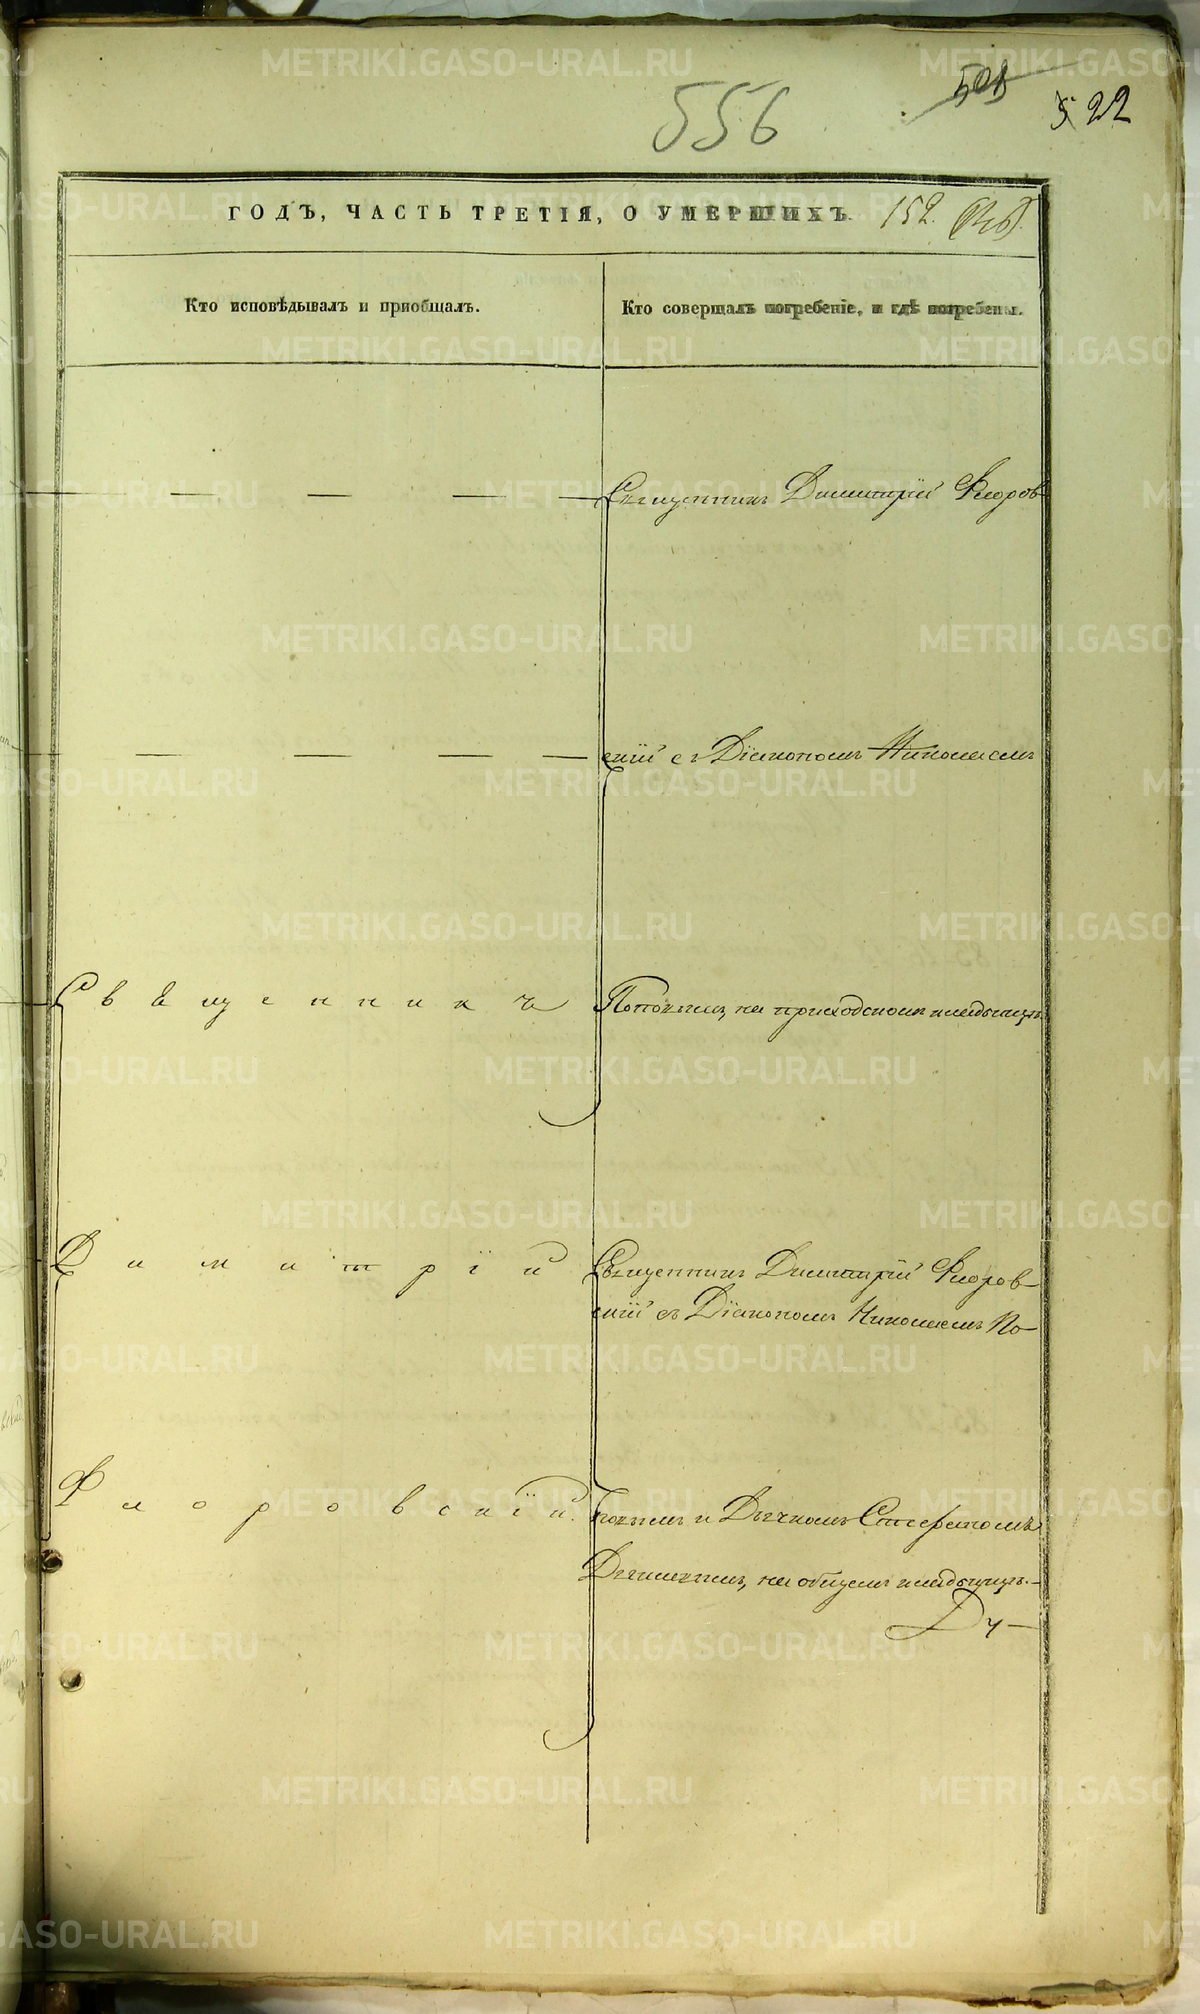 556
505
522
ГОДЪ, ЧАСТЬ ТРЕТІЯ, О УМЕРШИХЪ. 152.
Кто исповѣдывалъ и пріобщалъ.
Кто совершалъ погребеніе, и гдѣ погребены.
Священникъ Димитрій Флоров
скій съ Діакономъ Николаемъ
Священникъ
Поповымъ, на приходскомъ кладбищѣ
Димитрій
Священникъ Димитрій Флоров–
скій съ Діакономъ Николаемъ По–
Флоровскій.
повымъ и Дьячкомъ Стефаномъ
на общемъ кладбищѣ.–
METRIKI.GASO-URAL.RU